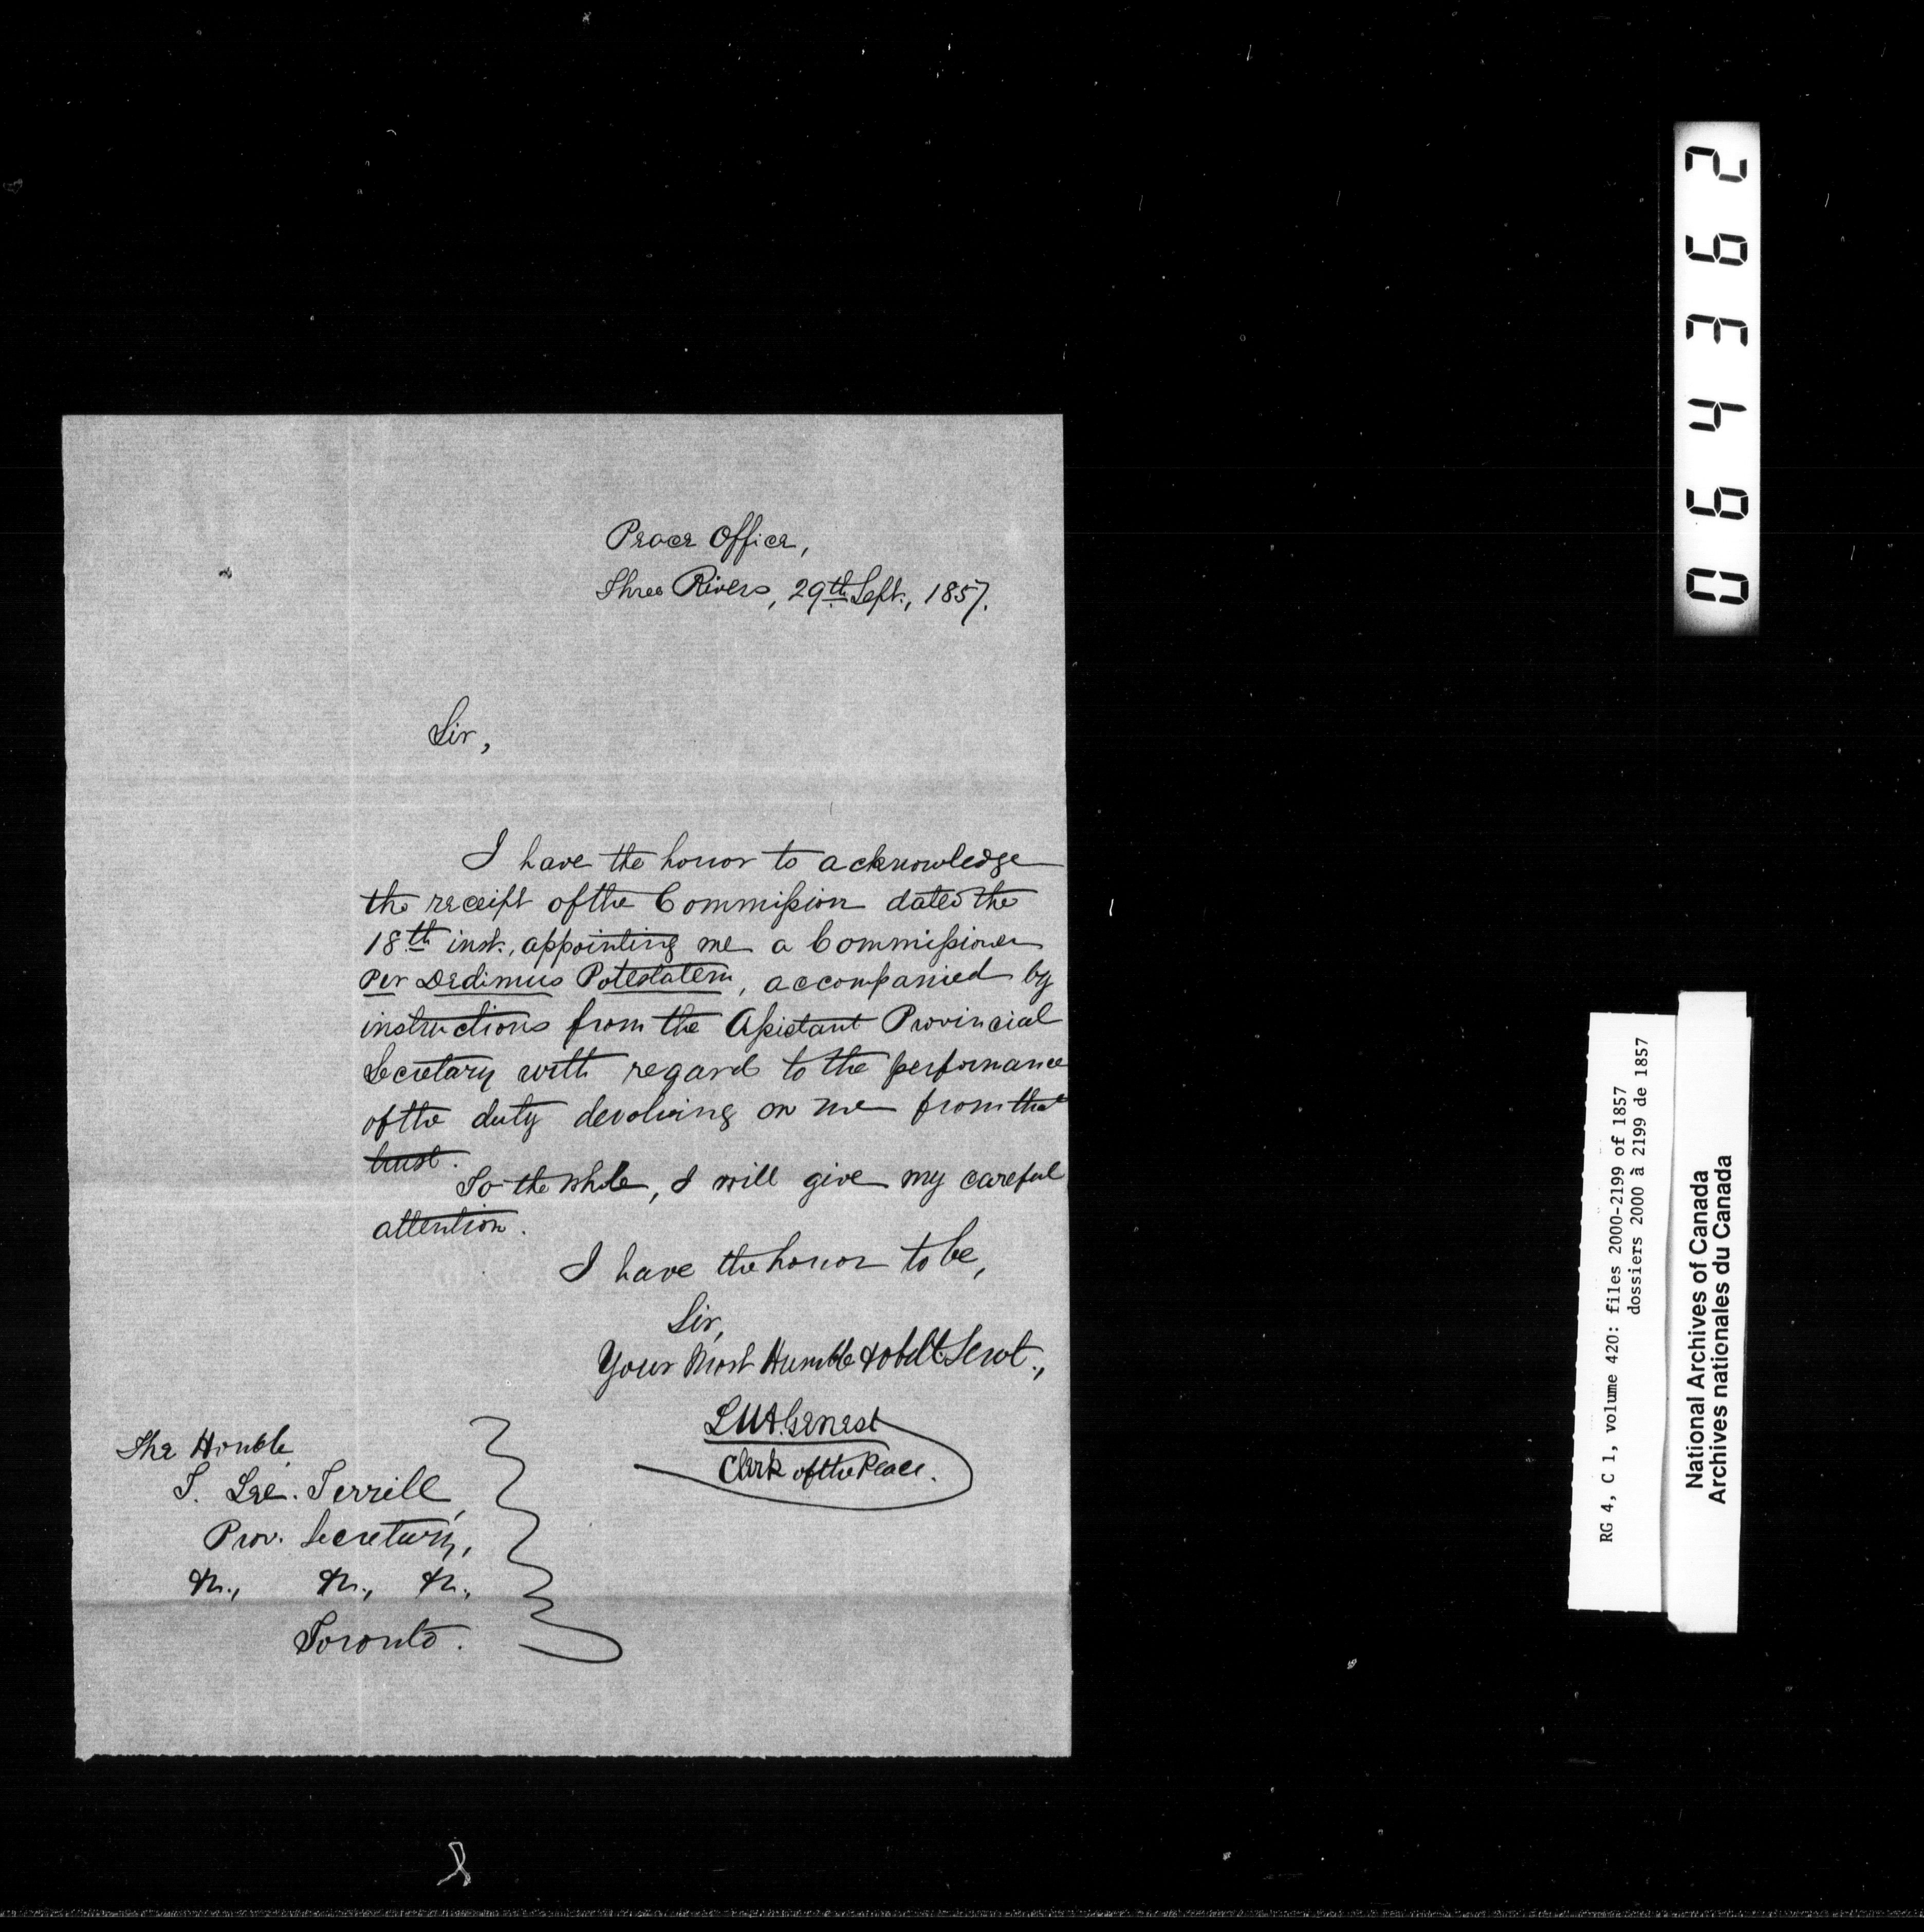 Peace Office,
Three Rivers, 29th Sept., 1857.
Sir,
I have the honor to acknowledge
the receipt of the Commission dated the
18th inst., appointing me a Commissioner
per Dedimus Potestatem, accompanied by
instructions from the Assistant Provincial
Secretary with regard to the performance
of the duty devolving on me from that
trust.
To the whole, I will give my careful
attention.
I have the honor to be,
Sir,
Your Most Humble & obdt. Servt.,
L.U.A. Genest
Clerk of the Peace.
The Honble.
T. Lee. Terrill,
Prov. Secretary,
&c., &c., &c.,
Toronto.
064362
RG 4, C 1, volume 420: files 2000-2199 of 1857
dossiers 2000 à 2199 de 1857
National Archives of Canada
Archives nationales du Canada